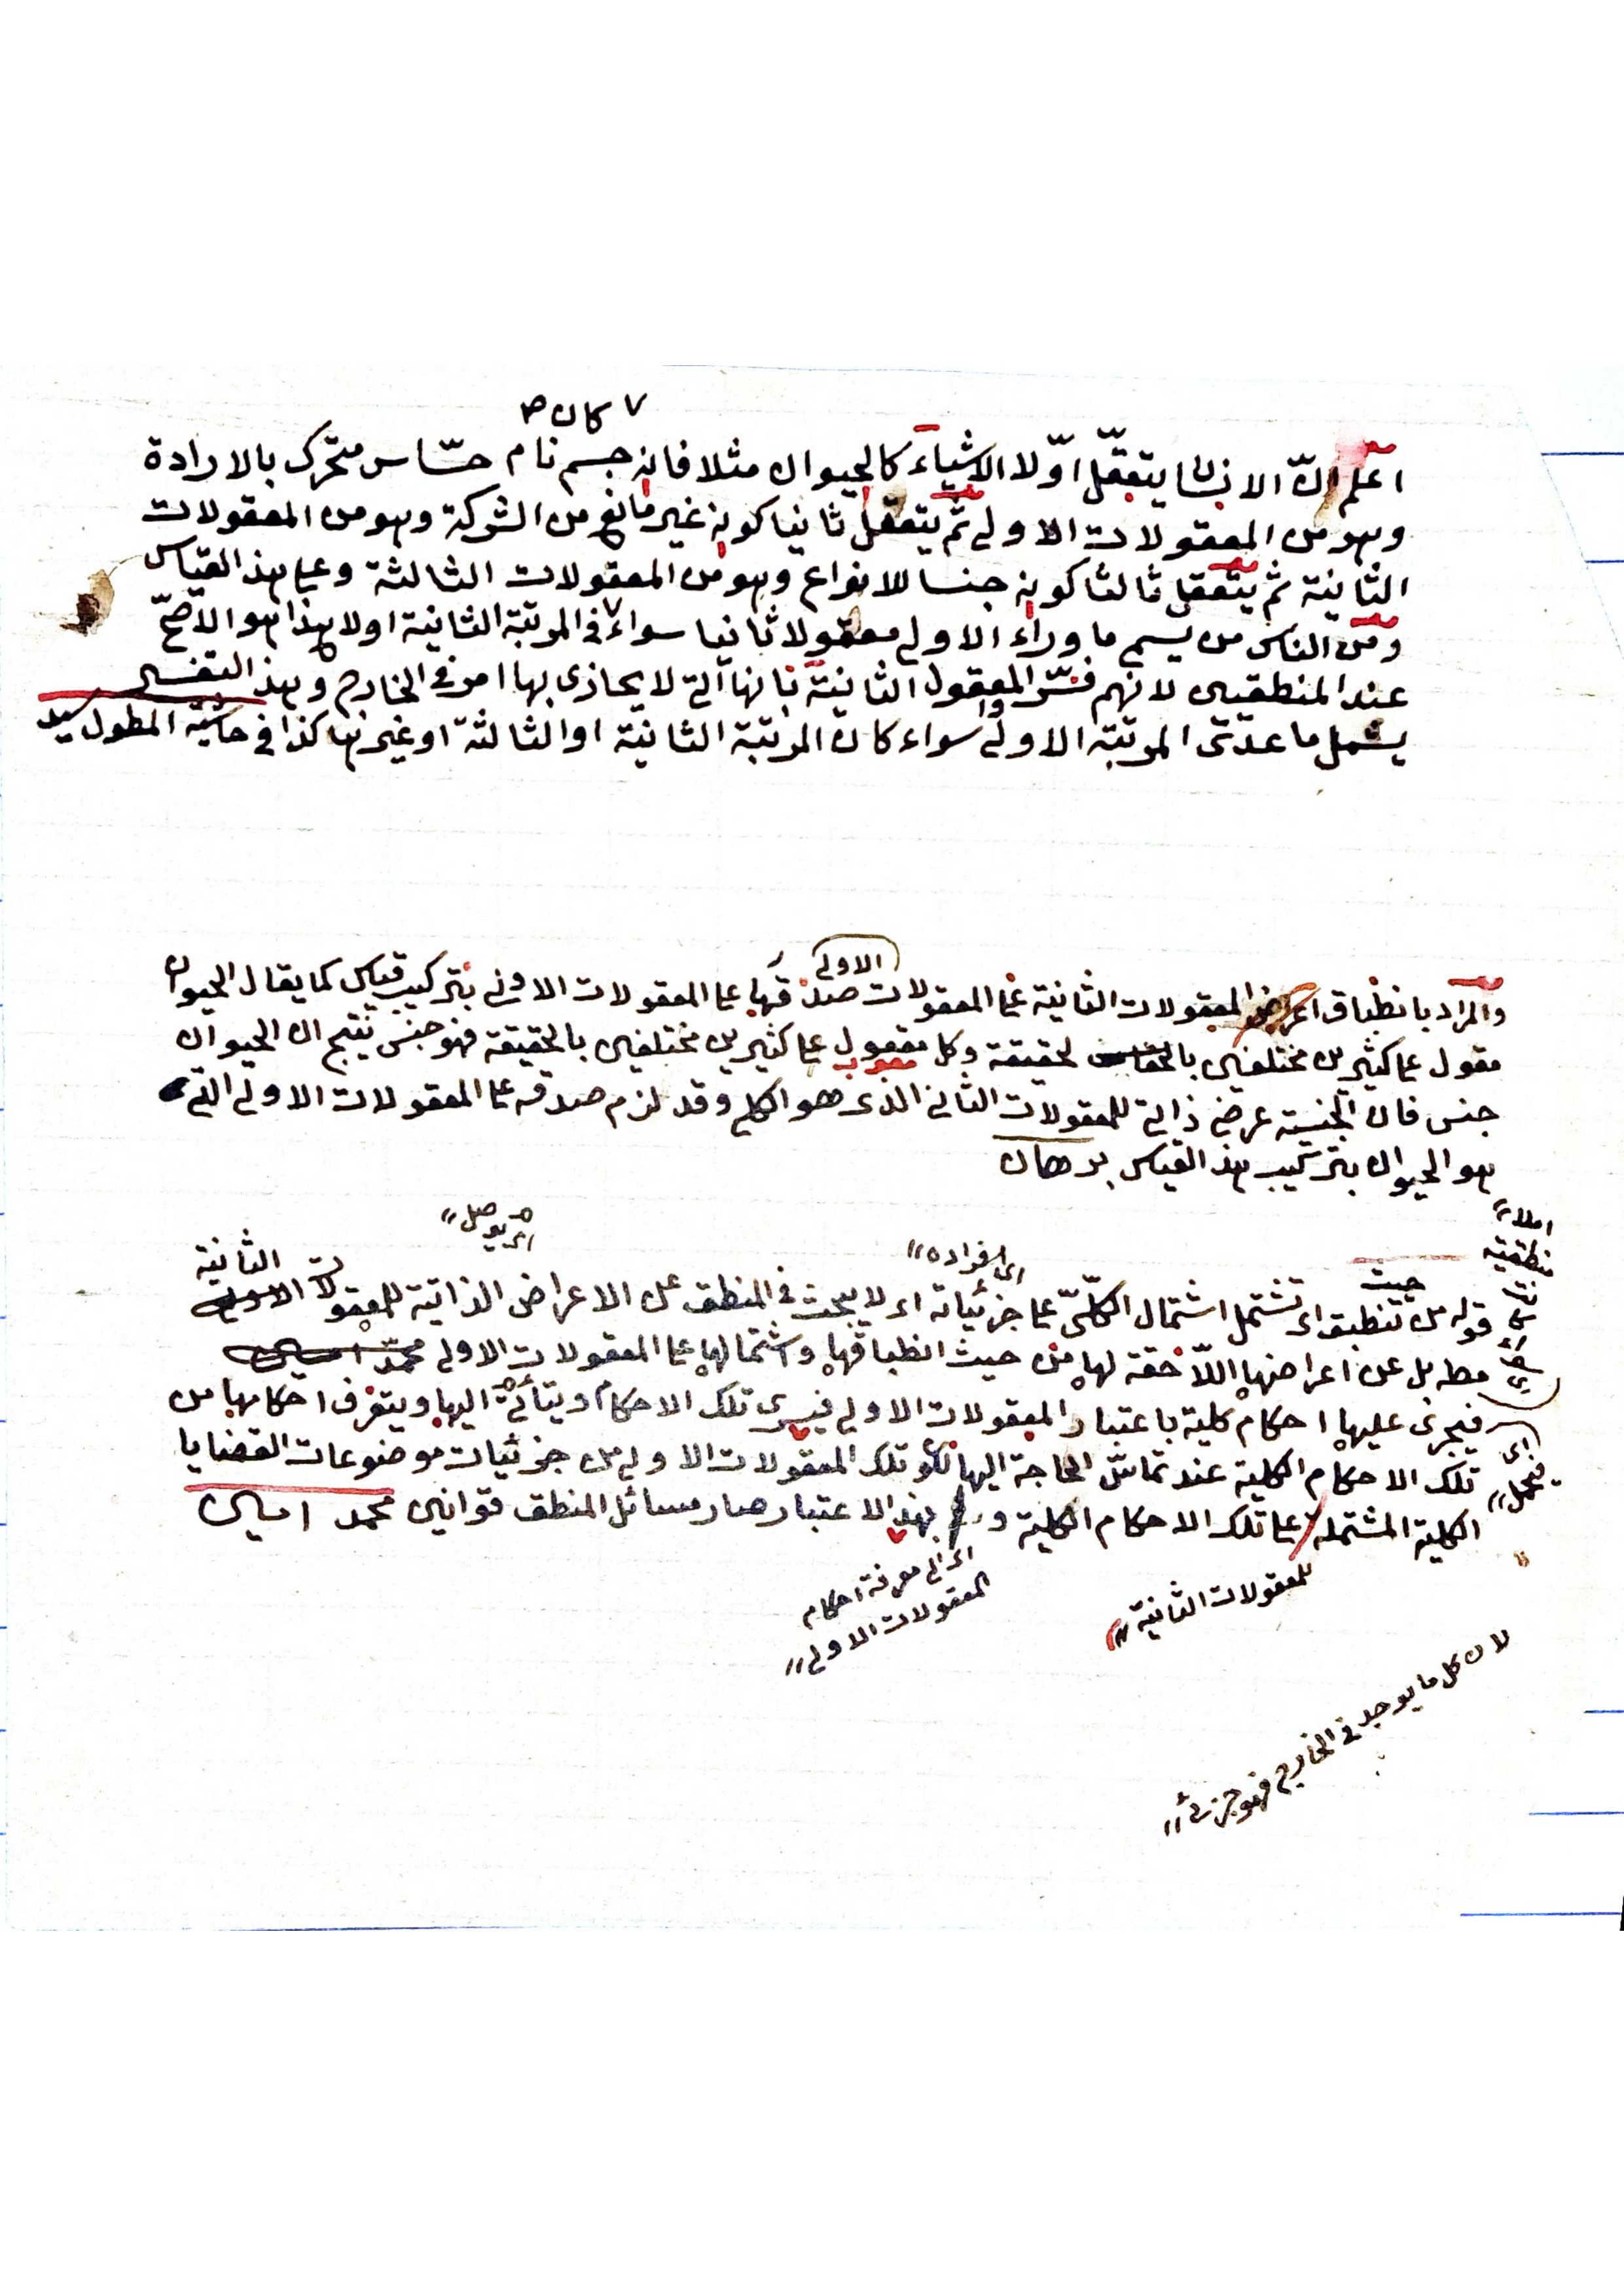 ٧ كان صح
اعلم انّ الانسان يتعقّل اوّلا الاشياء كالحيوان مثلا فانه جسم نام حسّاس متحرك بالارادة
وهو من المعقولات الاولى ثم يتعقل ثانيا كونه غير مانع من الشركة وهو من المعقولات
الثانية ثم يتعقل ثالثا كونه جنسا للانواع وهو من المعقولات الثالثة وعلى هذا القياس
ومن الناس من يسمى ما وراء الاولى معقولا ثانيا سواء٧ في المرتبة الثانية اولا وهذا هو الاصحّ
عند المنطقيين لانهم فسّروا المعقول الثانية بانها التى لا يحاذى بها امر فى الخارج وهذا التفسير
يشمل ما عدى المرتبة الاولى سواء كان المرتبة الثانية او الثالثة او غيرها كذا فى حاشية المطول سيد
الاولى
والمراد بانطباق المعقولات الثانية على المعقولات صدقها على المعقولات الاولى بتركيب قياس كما يقال الحيوان
مقول على كثيرين مختلفين بالحقيقة وكل مقول على كثيرين مختلفين بالحقيقة فهو جنس ينتج ان الحيوان
جنس فان الجنسية عرض ذاتى للمعقولات الثانى الذى هو الكلى وقد لزم صدقه على المعقولات الاولى التى
هو الحيوان بتركيب هذا القياس برهان
اى يوصل
اى افراده
الثانية
قوله من حيث تنطبق اى تشتمل اشتمال الكلّى على جزئياته اى لا يبحث فى المنطق عن الاعراض الذاتية للمعقولات
مط بل عن اعراضها اللاحقة لها من حيث انطباقها واشتمالها على المعقولات الاولى
فيجرى عليها احكام كلية باعتبار المعقولات الاولى فيسرى تلك الاحكام ويتأدى اليها ويتعرف احكامها من
تلك الاحكام الكلية عند تماسّ الحاجة اليها لكون تلك المعقولات الاولى من جزئيات موضوعات القضايا
الكلية المشتملة على تلك الاحكام الكلية و بهذا الاعتبار صار مسائل المنطق قوانين محمد امين
اى فيحمل
للمعقولات الثانية
اى الى معرفة احكام
المعقولات الاولى
لان كل ما يوجد فى الخارج فهو جزئى